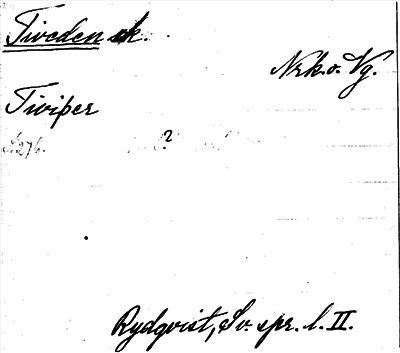 Tiveden sk.
Nrk. o. Vg.
Tiviþer
s. 276.
?
Rydqvist, Sv. spr. l. II.